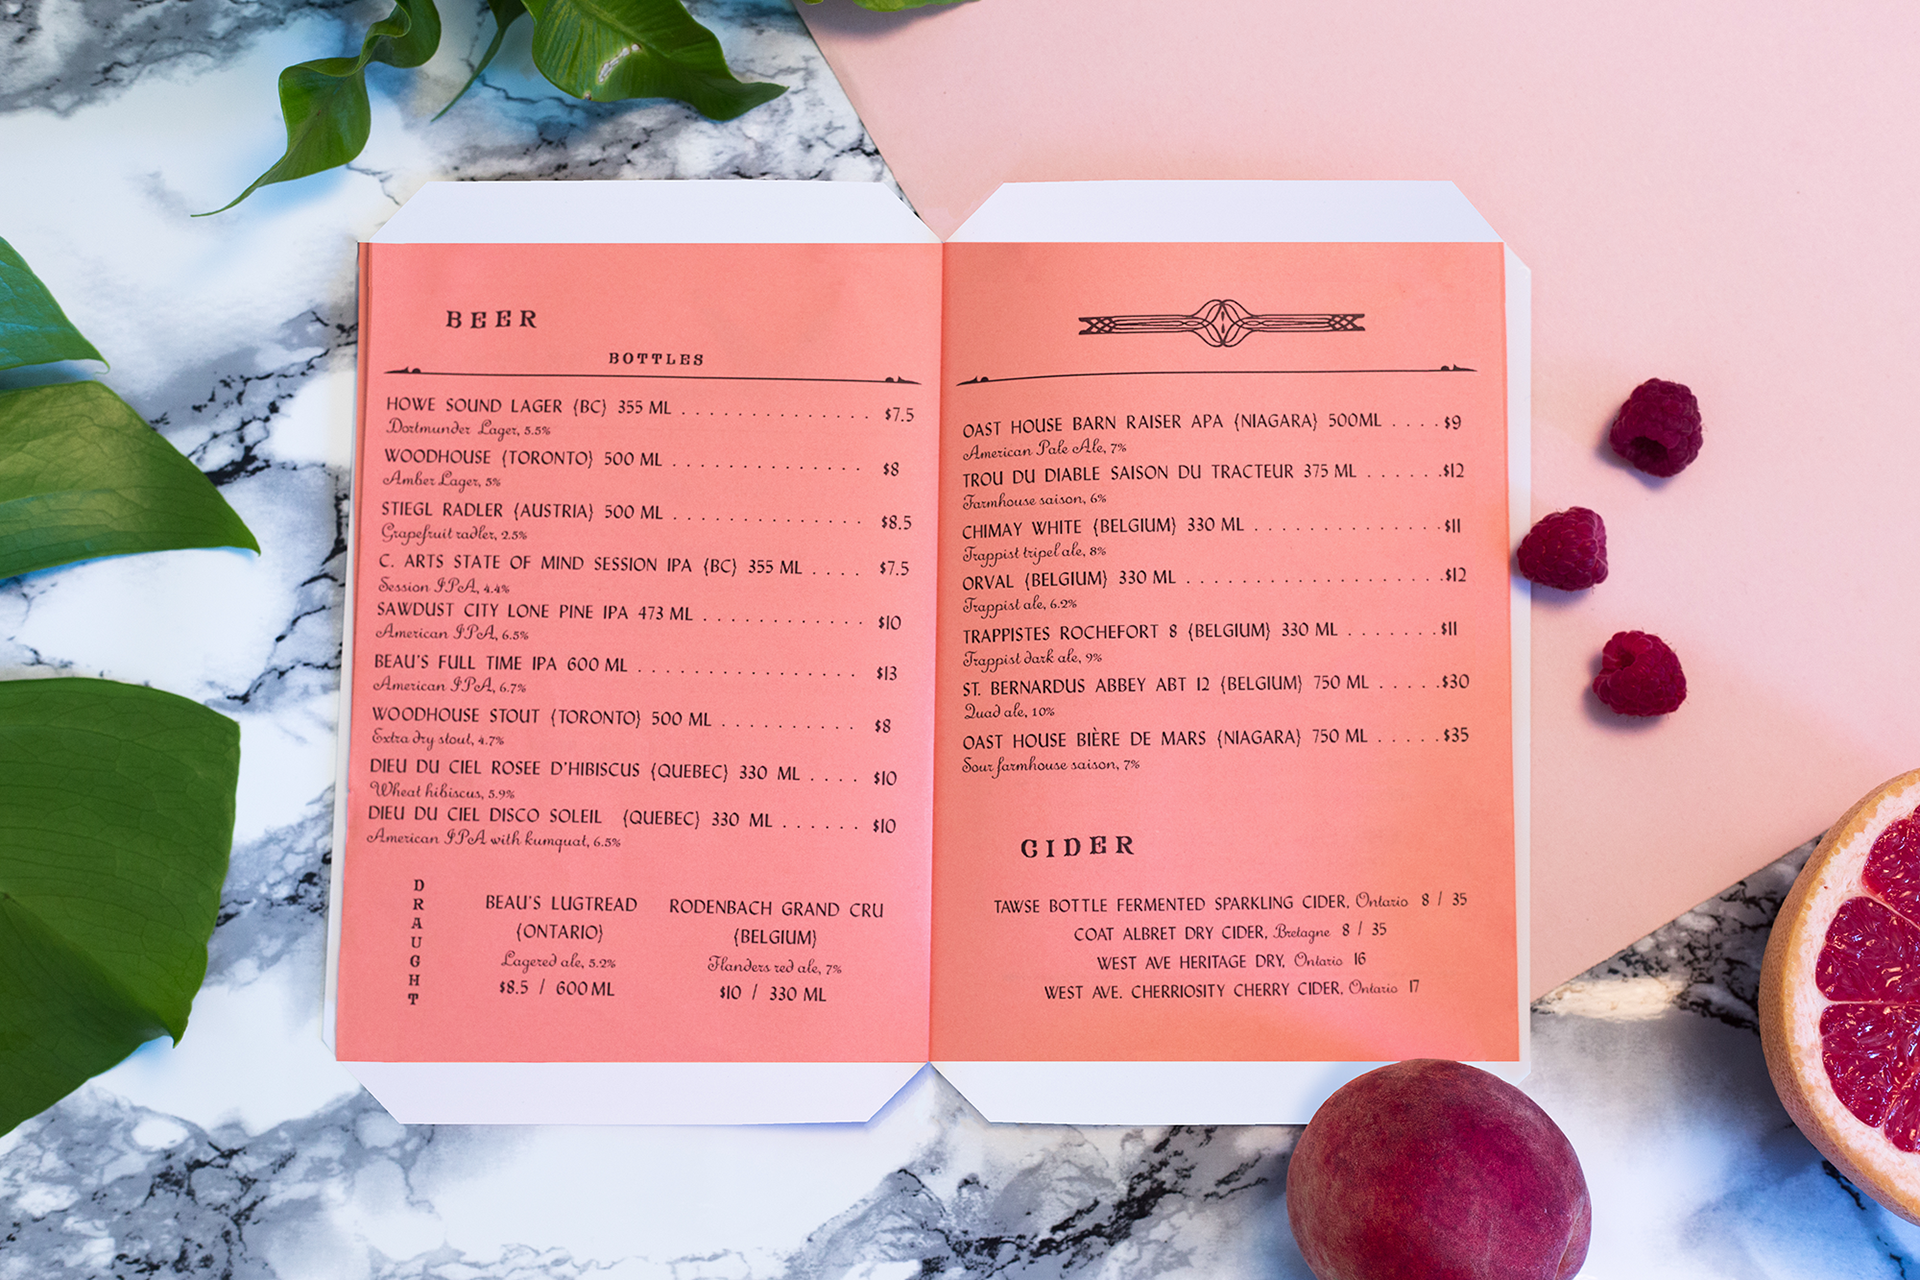 BEER
BOTTLES
HOWE SOUND LAGER {BC} 355 ML . . . . . . . . . . . . . . $7.5
Dortmunder Lager, 5.5%
WOODHOUSE {TORONTO} 500 ML . . . . . . . . . . . . . . $8
Amber Lager, 5%
STIEGL RADLER {AUSTRIA} 500 ML . . . . . . . . . . . . . . $8.5
Grapefruit radler, 2.5%
C. ARTS STATE OF MIND SESSION IPA {BC} 355 ML . . . . $7.5
Session IPA, 4.4%
SAWDUST CITY LONE PINE IPA 473 ML . . . . . . . . . . . . $10
American IPA, 6.5%
BEAU'S FULL TIME IPA 600 ML . . . . . . . . . . . . . . . . $13
American IPA, 6.7%
WOODHOUSE STOUT {TORONTO} 500 ML . . . . . . . . . . $8
Extra dry stout, 4.7%
DIEU DU CIEL ROSEE D'HIBISCUS {QUEBEC} 330 ML . . . . $10
Wheat hibiscus, 5.9%
DIEU DU CIEL DISCO SOLEIL {QUEBEC} 330 ML . . . . . . $10
American IPA with kumquat, 6.5%
DRAUGHT
BEAU'S LUGTREAD
{ONTARIO}
Lagered ale, 5.2%
$8.5 / 600 ML
RODENBACH GRAND CRU
{BELGIUM}
Flanders red ale, 7%
$10 / 330 ML
OAST HOUSE BARN RAISER APA {NIAGARA} 500ML . . . . $9
American Pale Ale, 7%
TROU DU DIABLE SAISON DU TRACTEUR 375 ML . . . . . . .$12
Farmhouse saison, 6%
CHIMAY WHITE {BELGIUM} 330 ML . . . . . . . . . . . . . . .$11
Trappist tripel ale, 8%
ORVAL {BELGIUM} 330 ML . . . . . . . . . . . . . . . . . . . .$12
Trappist ale, 6.2%
TRAPPISTES ROCHEFORT 8 {BELGIUM} 330 ML . . . . . . . .$11
Trappist dark ale, 9%
ST. BERNARDUS ABBEY ABT 12 {BELGIUM} 750 ML . . . . .$30
Quad ale, 10%
OAST HOUSE BIÈRE DE MARS {NIAGARA} 750 ML . . . . . .$35
Sour farmhouse saison, 7%
CIDER
TAWSE BOTTLE FERMENTED SPARKLING CIDER, Ontario 8 / 35
COAT ALBRET DRY CIDER, Bretagne 8 / 35
WEST AVE HERITAGE DRY, Ontario 16
WEST AVE. CHERRIOSITY CHERRY CIDER, Ontario 17